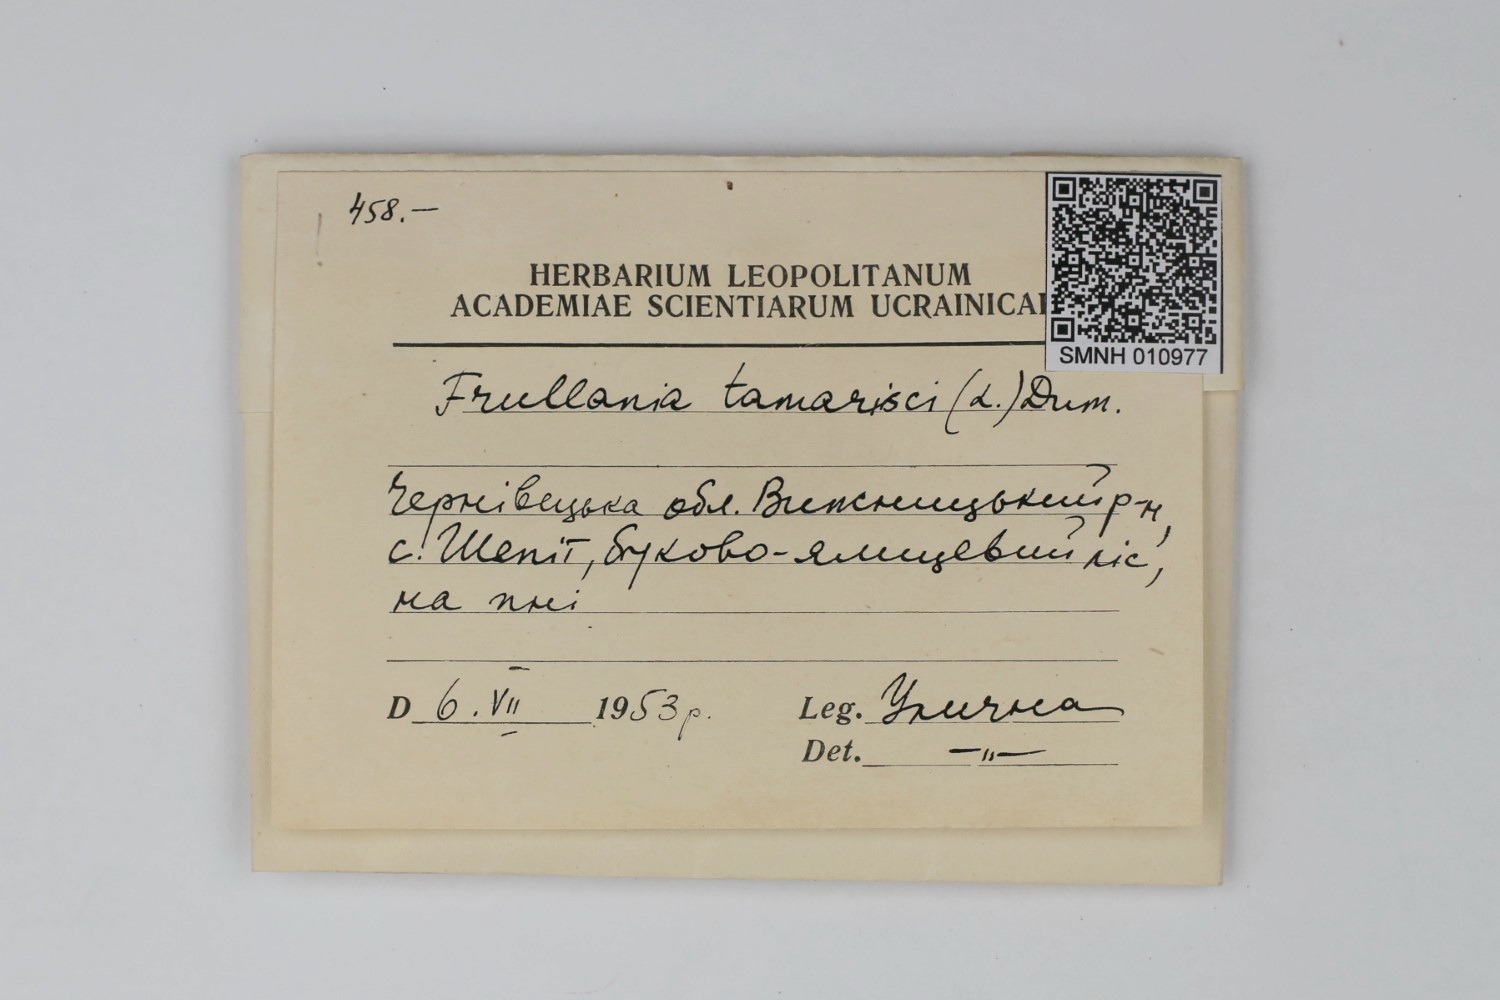 458.—
HERBARIUM LEOPOLITANUM
ACADEMIAE SCIENTIARUM UCRAINICAE
SMNH 010977
Frullania tamarisci (L.) Dum.
Чернівецька обл. Вижницький р-н,
с. Шепіт, буково-ялицевий ліс,
на пні
D 6. VII 1953 р.
Leg. Улична
Det. —„—